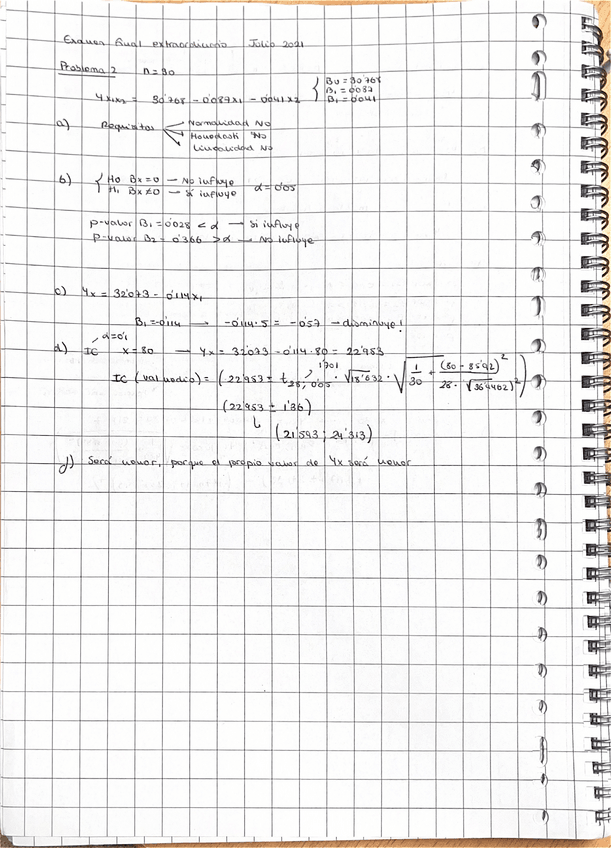 Examen final extraordinario Julio 2021
Problema 2 n=30
Yx1x2 = 30'768 - 0'087x1 - 0'041x2 { B0 = 30'768
B1 = 0'087
B1 = 0'041
a) Requisitos → Normalidad No
→ Homodasti No
→ Linealidad No
b) { H0 Bx=0 — No influye
H1 Bx≠0 — Sí influye α=0'05
p-valor B1 = 0'028 < α → Sí influye
p-valor B2 = 0'366 > α → No influye
c) Yx = 32'073 - 0'114x1
B1 = -0'114 → -0'114·5 = -0'57 → disminuye!
d) IC α=0'1 x=80 → Yx = 32'073 - 0'114·80 = 22'953
IC (val medio) = (22'953 ± t28; 0'05 1'701 · √18'632 · √1/30 + (80 - 85'92)²/28·√(36'4402)²)
(22'953 ± 1'36)
↳ (21'593 ; 24'313)
f) Será menor, porque el propio valor de Yx será menor